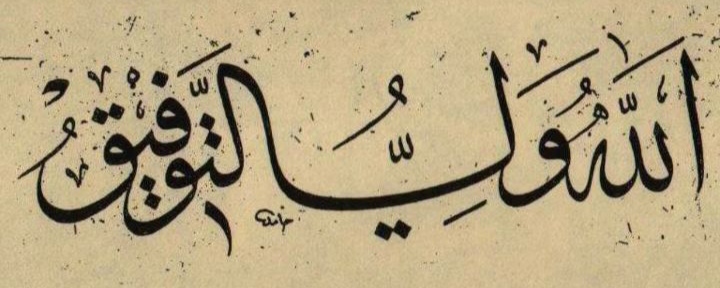 اللَّهُ وَلِيُّ التَّوْفِيقِ
حامد